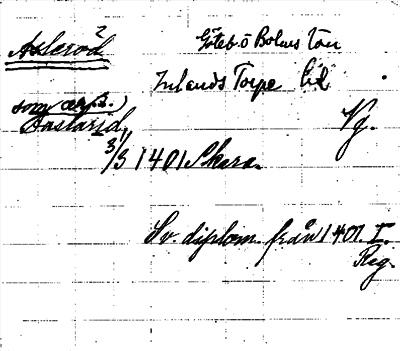 Asleröd 2
Göteb o Bohus län
Inlands Torpe hd
som anf.)
Vg.
Aaslarid,
3/3 1401 Skara.
Sv. diplom. från 1401. I.
Reg.